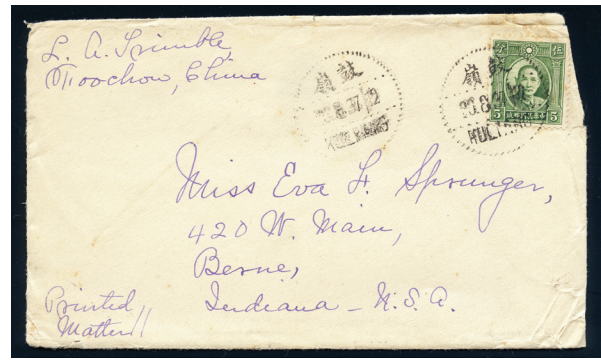 L. A. Trimble,
Foochow, China
鼓嶺
26.8.37
KULIANG
鼓嶺
26.8.37
KULIANG
伍
5
5
Miss Eva F. Sprunger,
420 W. Main,
Berne,
Indiana - U.S.A.
Printed
Matter